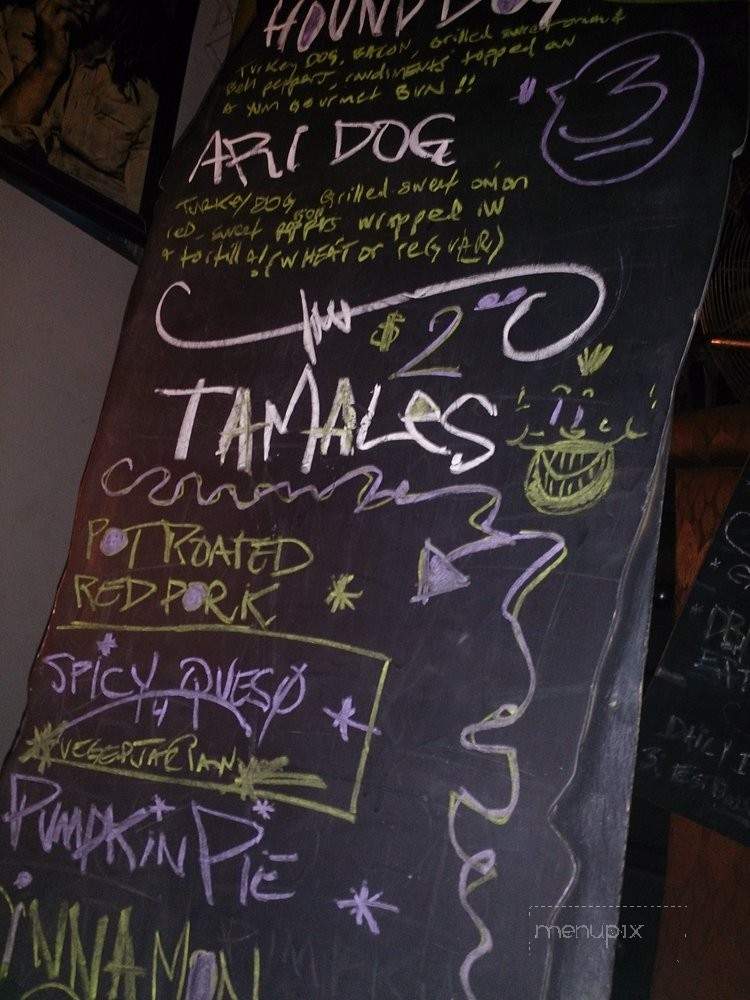 HOUND DOG
Turkey DOG, BACON, Grilled sweet onion &
Bell peppers, condiments topped on
a yum Gourmet BUN !!
3
ARI DOG
Turkey DOG Grilled sweet onion
red sweet peppers wrapped iN
a tortilla! (WHEAT or reguLAR)
$2.00
TAMALES
POT ROATED
RED PORK *
SPICY QUESO *
VEGERTARIAN
PUMPKIN PIE *
INNAMON
menupix